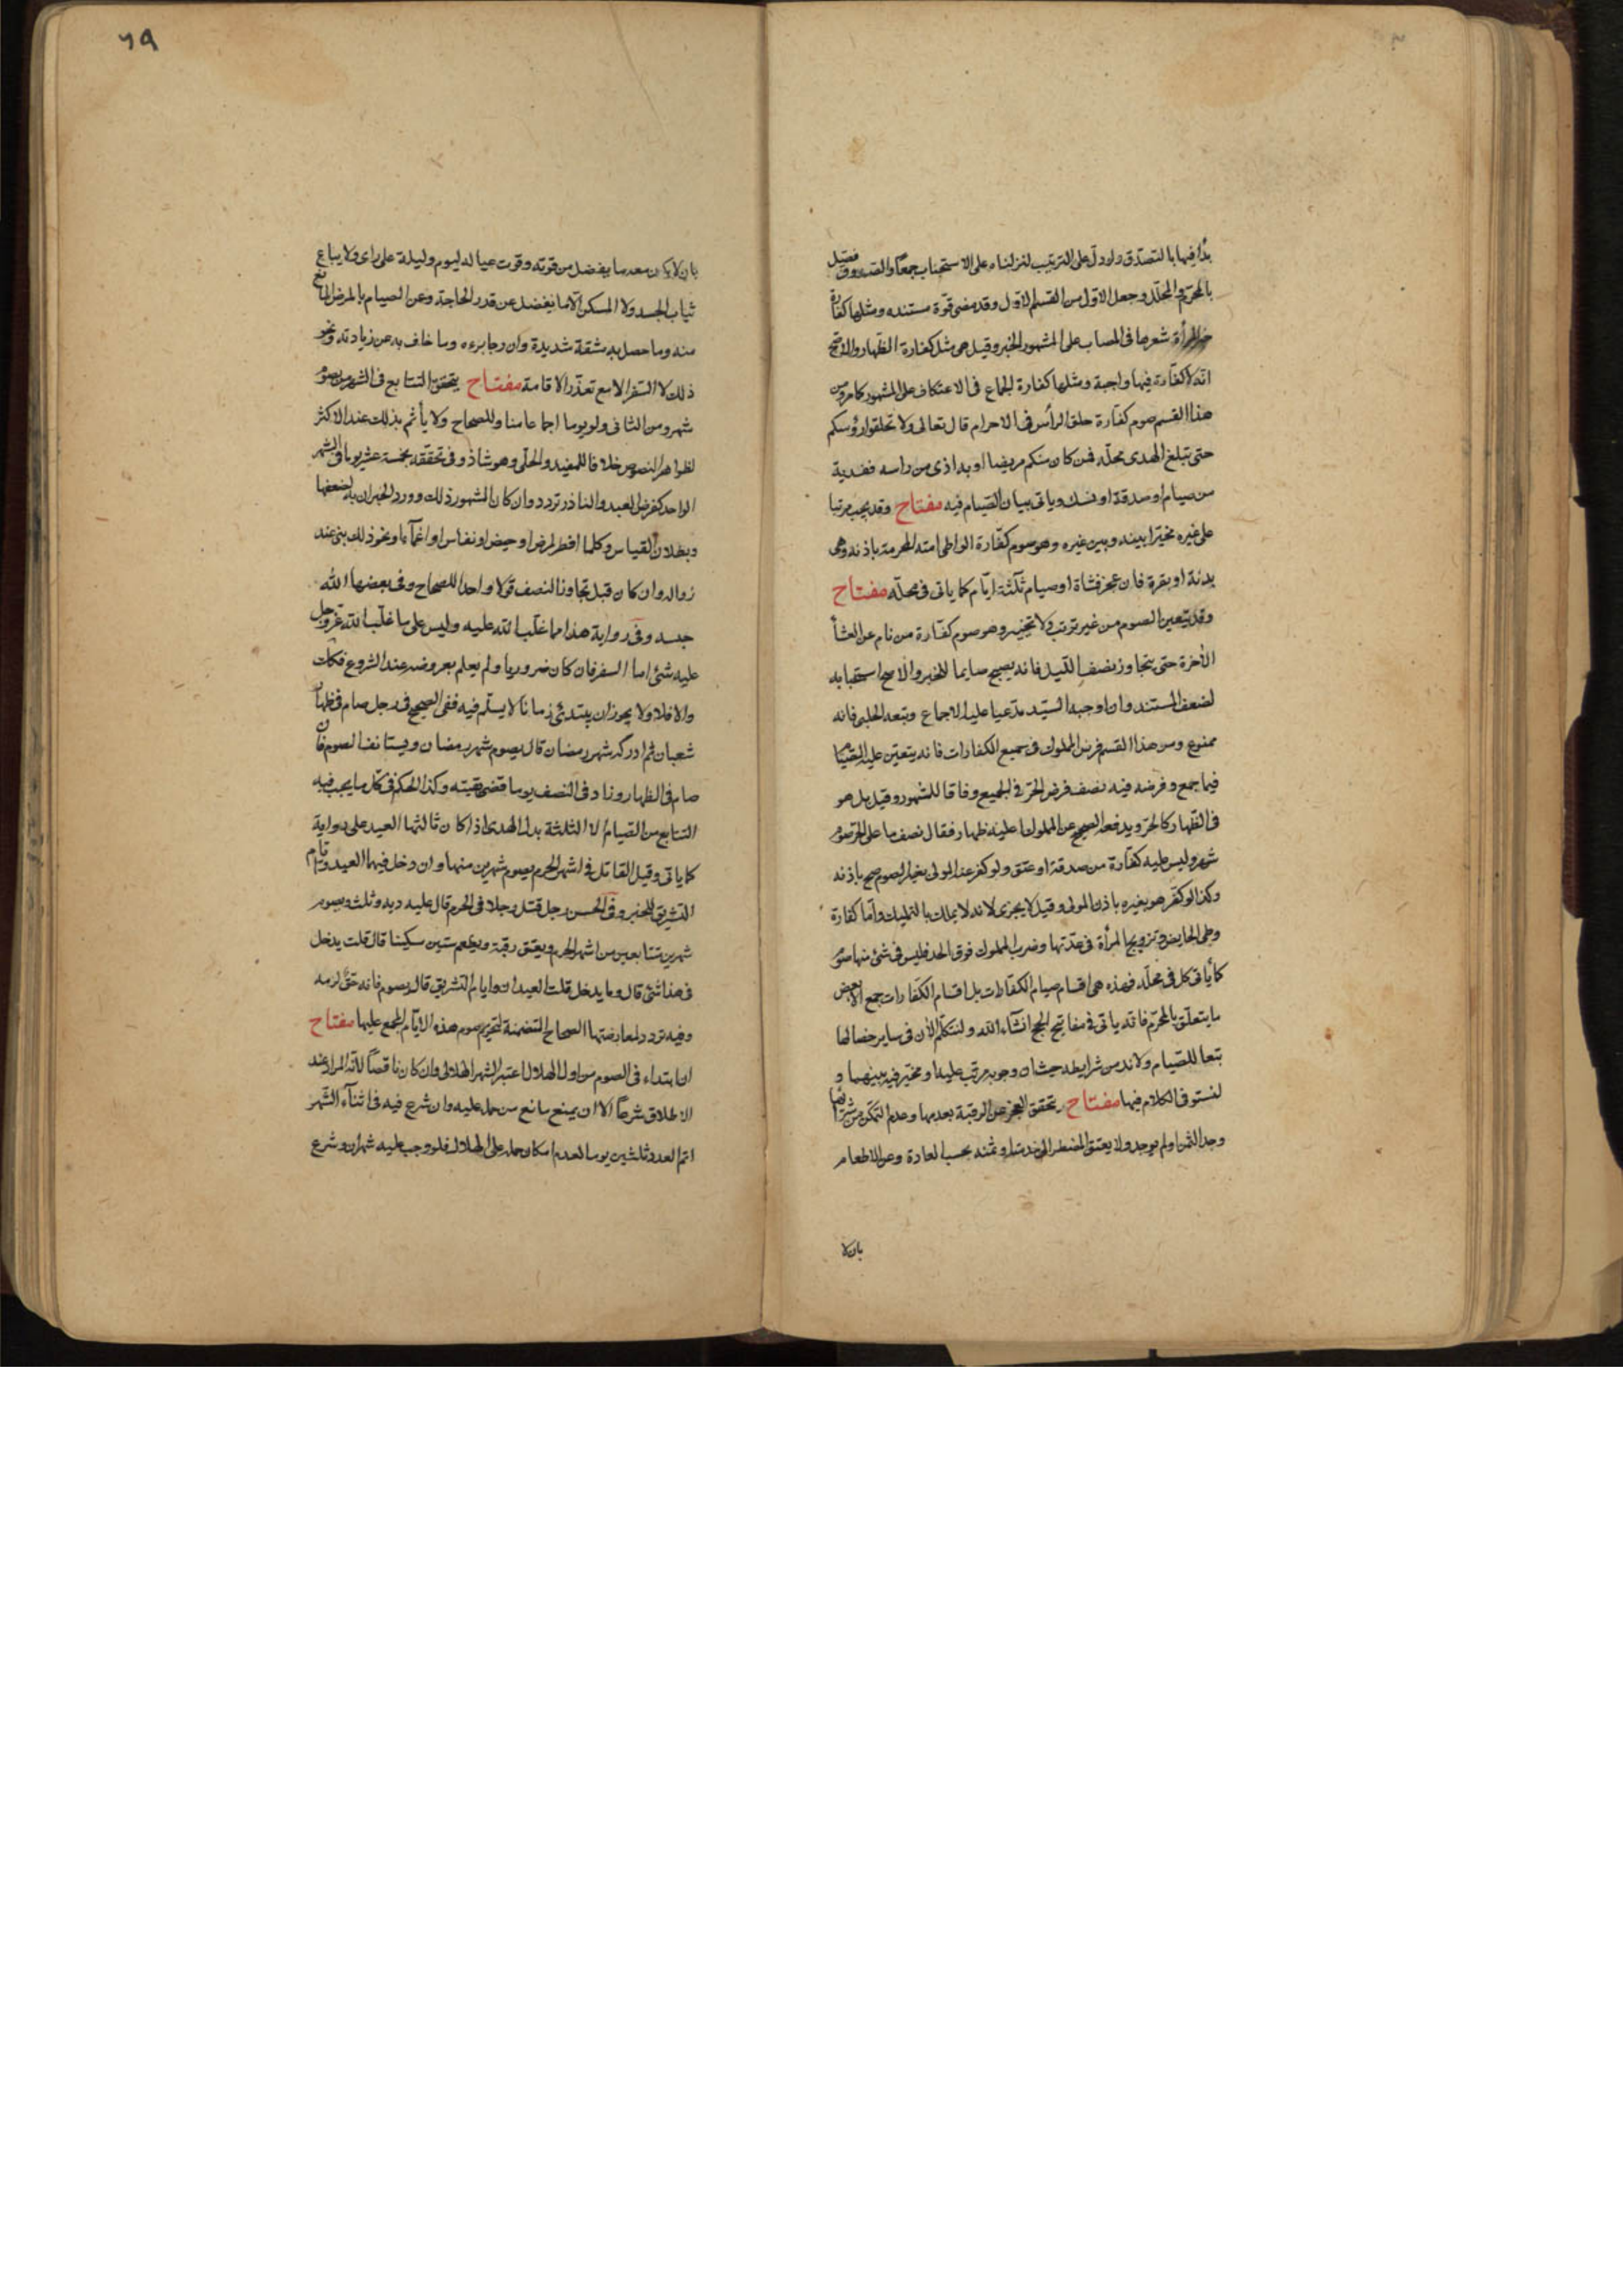 بدأ فيها بالتصدق ولو دل على الترتيب لنزلناه على الاستحباب جمعا والصدوق فقيل
بالمحرم والمحلل وجعل الاول من القسم الاول وقد مضى قوة مستنده ومثلها كفارة
جز المرأة شعرها في المصاب على المشهور للخبر وقيل هي مثل كفارة الظهار والاصح
انه لا كفارة فيها واجبة ومثلها كفارة الجماع في الاعتكاف على المشهور كما مر ومن
هذا القسم صوم كفارة حلق الرأس في الاحرام قال تعالى ولا تحلقوا رؤسكم
حتى يبلغ الهدى محله فمن كان منكم مريضا او به اذى من راسه ففدية
من صيام او صدقة او نسك وياتى بيان الصيام فيه مفتاح وقد يجب مرتبا
على غيره مخيرا بينه وبين غيره وهو صوم كفارة الواطى امته المحرمة باذنه وهى
بدنة او بقرة فان عجز فشاة او صيام ثلثة ايام كما ياتى فى محله مفتاح
وقد يتعين الصوم من غير ترتب ولا تخيير وهو صوم كفارة من نام عن العشأ
الآخرة حتى يتجاوز نصف الليل فانه يصبح صايما للخبر والاصح استحبابه
لضعف المستند وان اوجبه السيد مدعيا عليه الاجماع وتبعه الحلبى فانه
ممنوع ومن هذا القسم فرض المملوك فى جميع الكفارات فانه يتعين عليه الصيام
فيما جمع وفرضه فيه نصف فرض الحر فى الجميع وفاقا للمشهور وقيل بل هو
فى الظهار كالحر ويدفعه الصحيح عن المملوك اعليه ظهار فقال نصف ما على الحر صوم
شهر وليس عليه كفارة من صدقة او عتق ولو كفر عنه المولى بغير الصوم صح باذنه
وكذا لو كفر هو بغيره باذن المولى وقيل لا يجزى لانه لا يملك بالتمليك واما كفارة
وطى الحايض وتزويج المرأة فى عدتها وضرب المملوك فوق الحد فليس فى شئ منها صوم
كما ياتى كل فى محله فهذه هى اقسام صيام الكفارات بل اقسام الكفارات جمع الا بعض
ما يتعلق بالمحرم فانه ياتى فى مفاتيح الحج انشاء الله ولنتكلم الآن فى ساير خصالها
تبعا للصيام ولانه من شرايطه حيث ان وجوبه مرتب عليها او مخير فيه بينهما و
لنستوفى الكلام فيها مفتاح يتحقق العجز عن الرقبة بعدمها وعدم التمكن من شرائها
وجد الثمن او لم يوجد ولا يعتق المضطر الى خدمتها او ثمنه بحسب العادة وعن الاطعام
بان لا
٦٩
بان لا يكون معه ما يفضل من قوته وقوت عياله ليوم وليلة على راى ولا يباع
ثياب الجسد ولا المسكن الا ما يفضل عن قدر الحاجة وعن الصيام بالمرض المانع
منه وما حصل به مشقة شديدة وان رجا برءه وما خاف به عن زيادته ونحو
ذلك لا السفر الا مع تعذر الاقامة مفتاح يتحقق التتابع فى الشهرين بصوم
شهر ومن الثانى ولو يوما اجماعا منا وللصحاح ولا يأثم بذلك عند الاكثر
لظواهر النصوص خلافا للمفيد والحلى وهو شاذ وفى تحققه بخمسة عشر يوما فى الشهر
الواحد كفرض العبد والناذر تردد وان كان المشهور ذلك وورد الخبران به لضعفها
وبطلان القياس وكلما افطر لمرض او حيض او نفاس او اغمآء او نحو ذلك بنى عند
زواله وان كان قبل تجاوز النصف قولا واحدا للصحاح وفى بعضها الله
حبسه وفى رواية هذا مما غلب الله عليه وليس على ما غلب الله عز وجل
عليه شئ اما السفر فان كان ضروريا ولم يعلم بعروضه عند الشروع فكذلك
والا فلا ولا يجوز ان يبتدئ زمانا لا يسلم فيه ففى الصحيح فى رجل صام فى ظهار
شعبان ثم ادركه شهر رمضان قال يصوم شهر رمضان ويستانف الصوم فان
صام فى الظهار وزاد فى النصف يوما قضى بقيته وكذا الحكم فى كل ما يجب فيه
التتابع من الصيام الا الثلثة بدل الهدى اذا كان ثالثها العيد على رواية
كما ياتى وقيل القاتل فى اشهر الحرم يصوم شهرين منها وان دخل فيهما العيد وايام
التشريق للخبر وفى الحسن رجل قتل رجلا فى الحرم قال عليه دية وثلث ويصوم
شهرين متتابعين من اشهر الحرم ويعتق رقبة ويطعم ستين مسكينا قال قلت يدخل
فى هذا شئ قال وما يدخل قلت العيدان وايام التشريق قال يصوم فانه حق لزمه
وفيه تردد لمعارضتها الصحاح المتضمنة لتحريم صوم هذه الايام المجمع عليها مفتاح
ان ابتداء فى الصوم من اول الهلال اعتبر الشهر الهلالى وان كان ناقصا لانه المراد عند
الاطلاق شرعا الا ان يمنع مانع من حمله عليه وان شرع فيه فى اثنآء الشهر
اتم العدد ثلثين يوما لعدم امكان حمله على الهلال فلو وجب عليه شهران وشرع